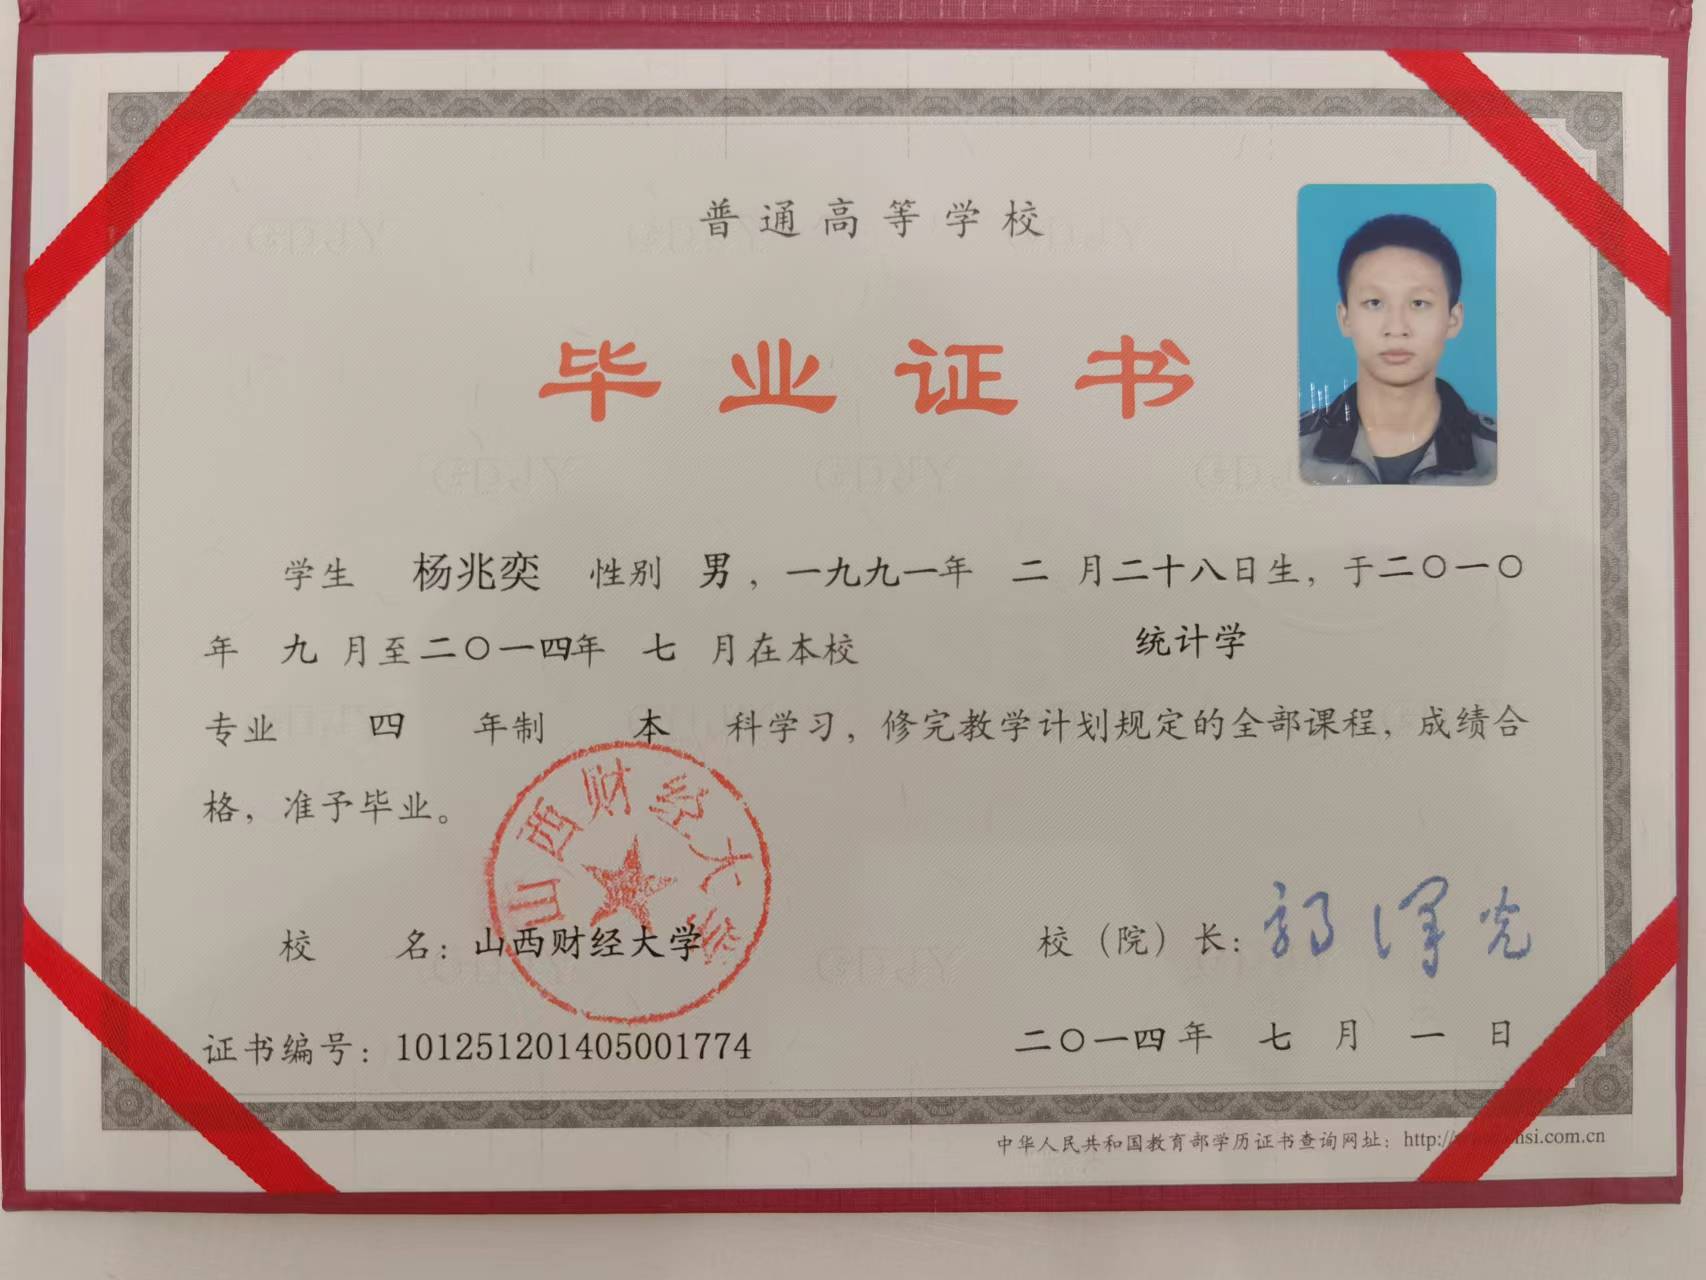 普通高等学校
毕业证书
学生 杨兆奕 性别 男，一九九一年 二 月二十八日生，于二〇一〇
年 九 月至二〇一四年 七 月在本校 统计学
专业 四 年制 本 科学习，修完教学计划规定的全部课程，成绩合
格，准予毕业。
山西财经大学
校 名：山西财经大学 校（院）长：郭泽光
证书编号：101251201405001774 二〇一四年 七 月 一 日
中华人民共和国教育部学历证书查询网址：http://
si.com.cn